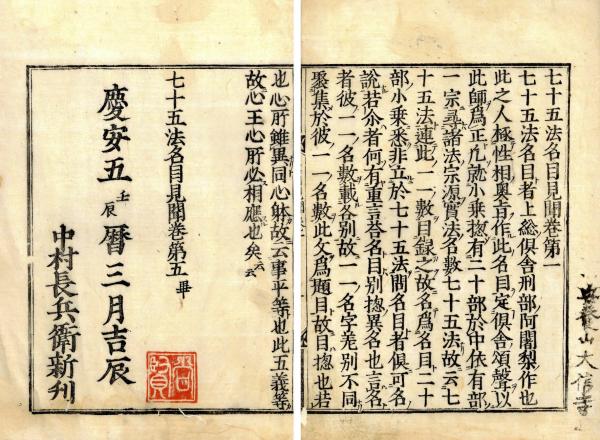 七十五法名目見聞卷第一
七十五法名目者上総倶舎刑部阿闍梨作也
此之人極性相奥旨作此名目定倶舎頌聲以
此師為正凢就小乗惣有二十部於中依有部
一宗尋諸法宗源實法名數七十五法故云七
十五法連此一一數目録之故名為名目二十
部小乗悉非立於七十五法間名目者倶可名
説若尒者何有重言荅名目別惣異名也言名
者彼一一名數載各別故一一名字差別不同
聚集於彼一一名數此文為題目故目惣也若
也心肝雖異同心躰故云事平等也此五義等
故心王心肝必相應也矣云云
七十五法名目見聞卷第五畢
慶安五壬辰暦三月吉辰
中村長兵衛新刊